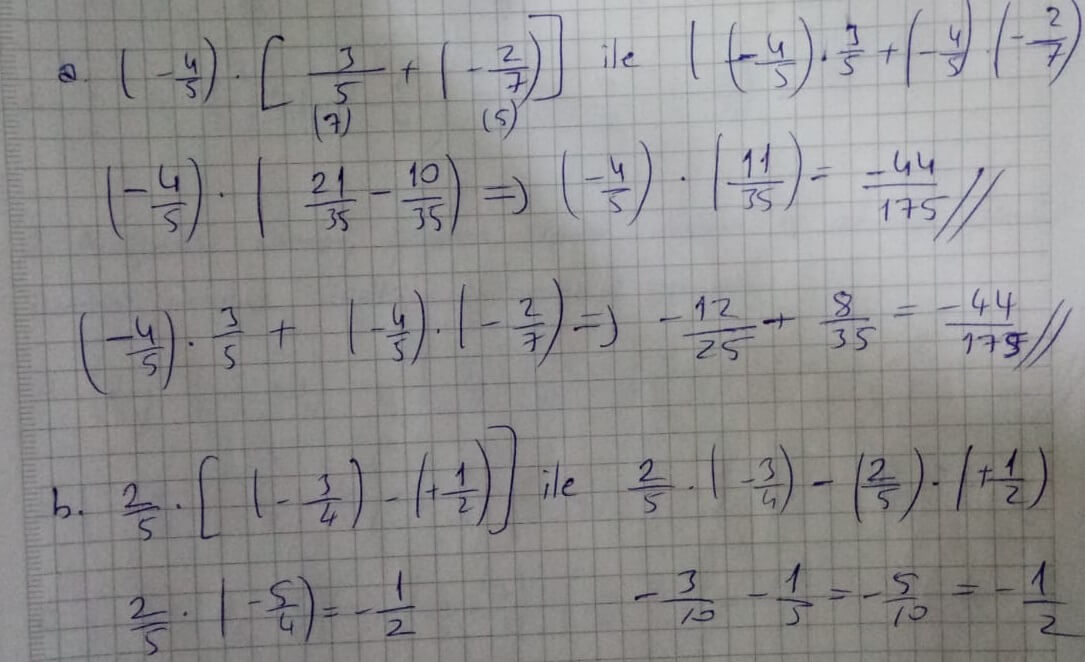 a. (-4/5) · [3/5 + (-2/7)] ile ((-4/5) · 3/5 + (-4/5) · (-2/7)
(7) (5)
(-4/5) · (21/35 - 10/35) => (-4/5) · (11/35) = -44/175 //
(-4/5) · 3/5 + (-4/5) · (-2/7) => -12/25 + 8/35 = -44/175 //
b. 2/5 · [(-3/4) - (+1/2)] ile 2/5 · (-3/4) - (2/5) · (+1/2)
2/5 · (-5/4) = -1/2 -3/10 - 1/5 = -5/10 = -1/2